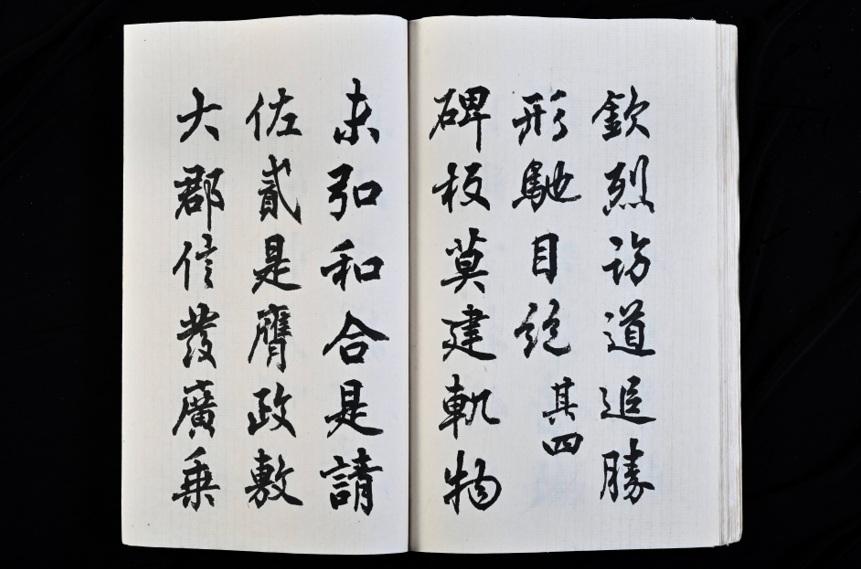 欽烈訪道追勝
形馳目絶其四
碑板莫建軌物
未弘和合是請
佐貳是膺政敷
大郡信發廣乘